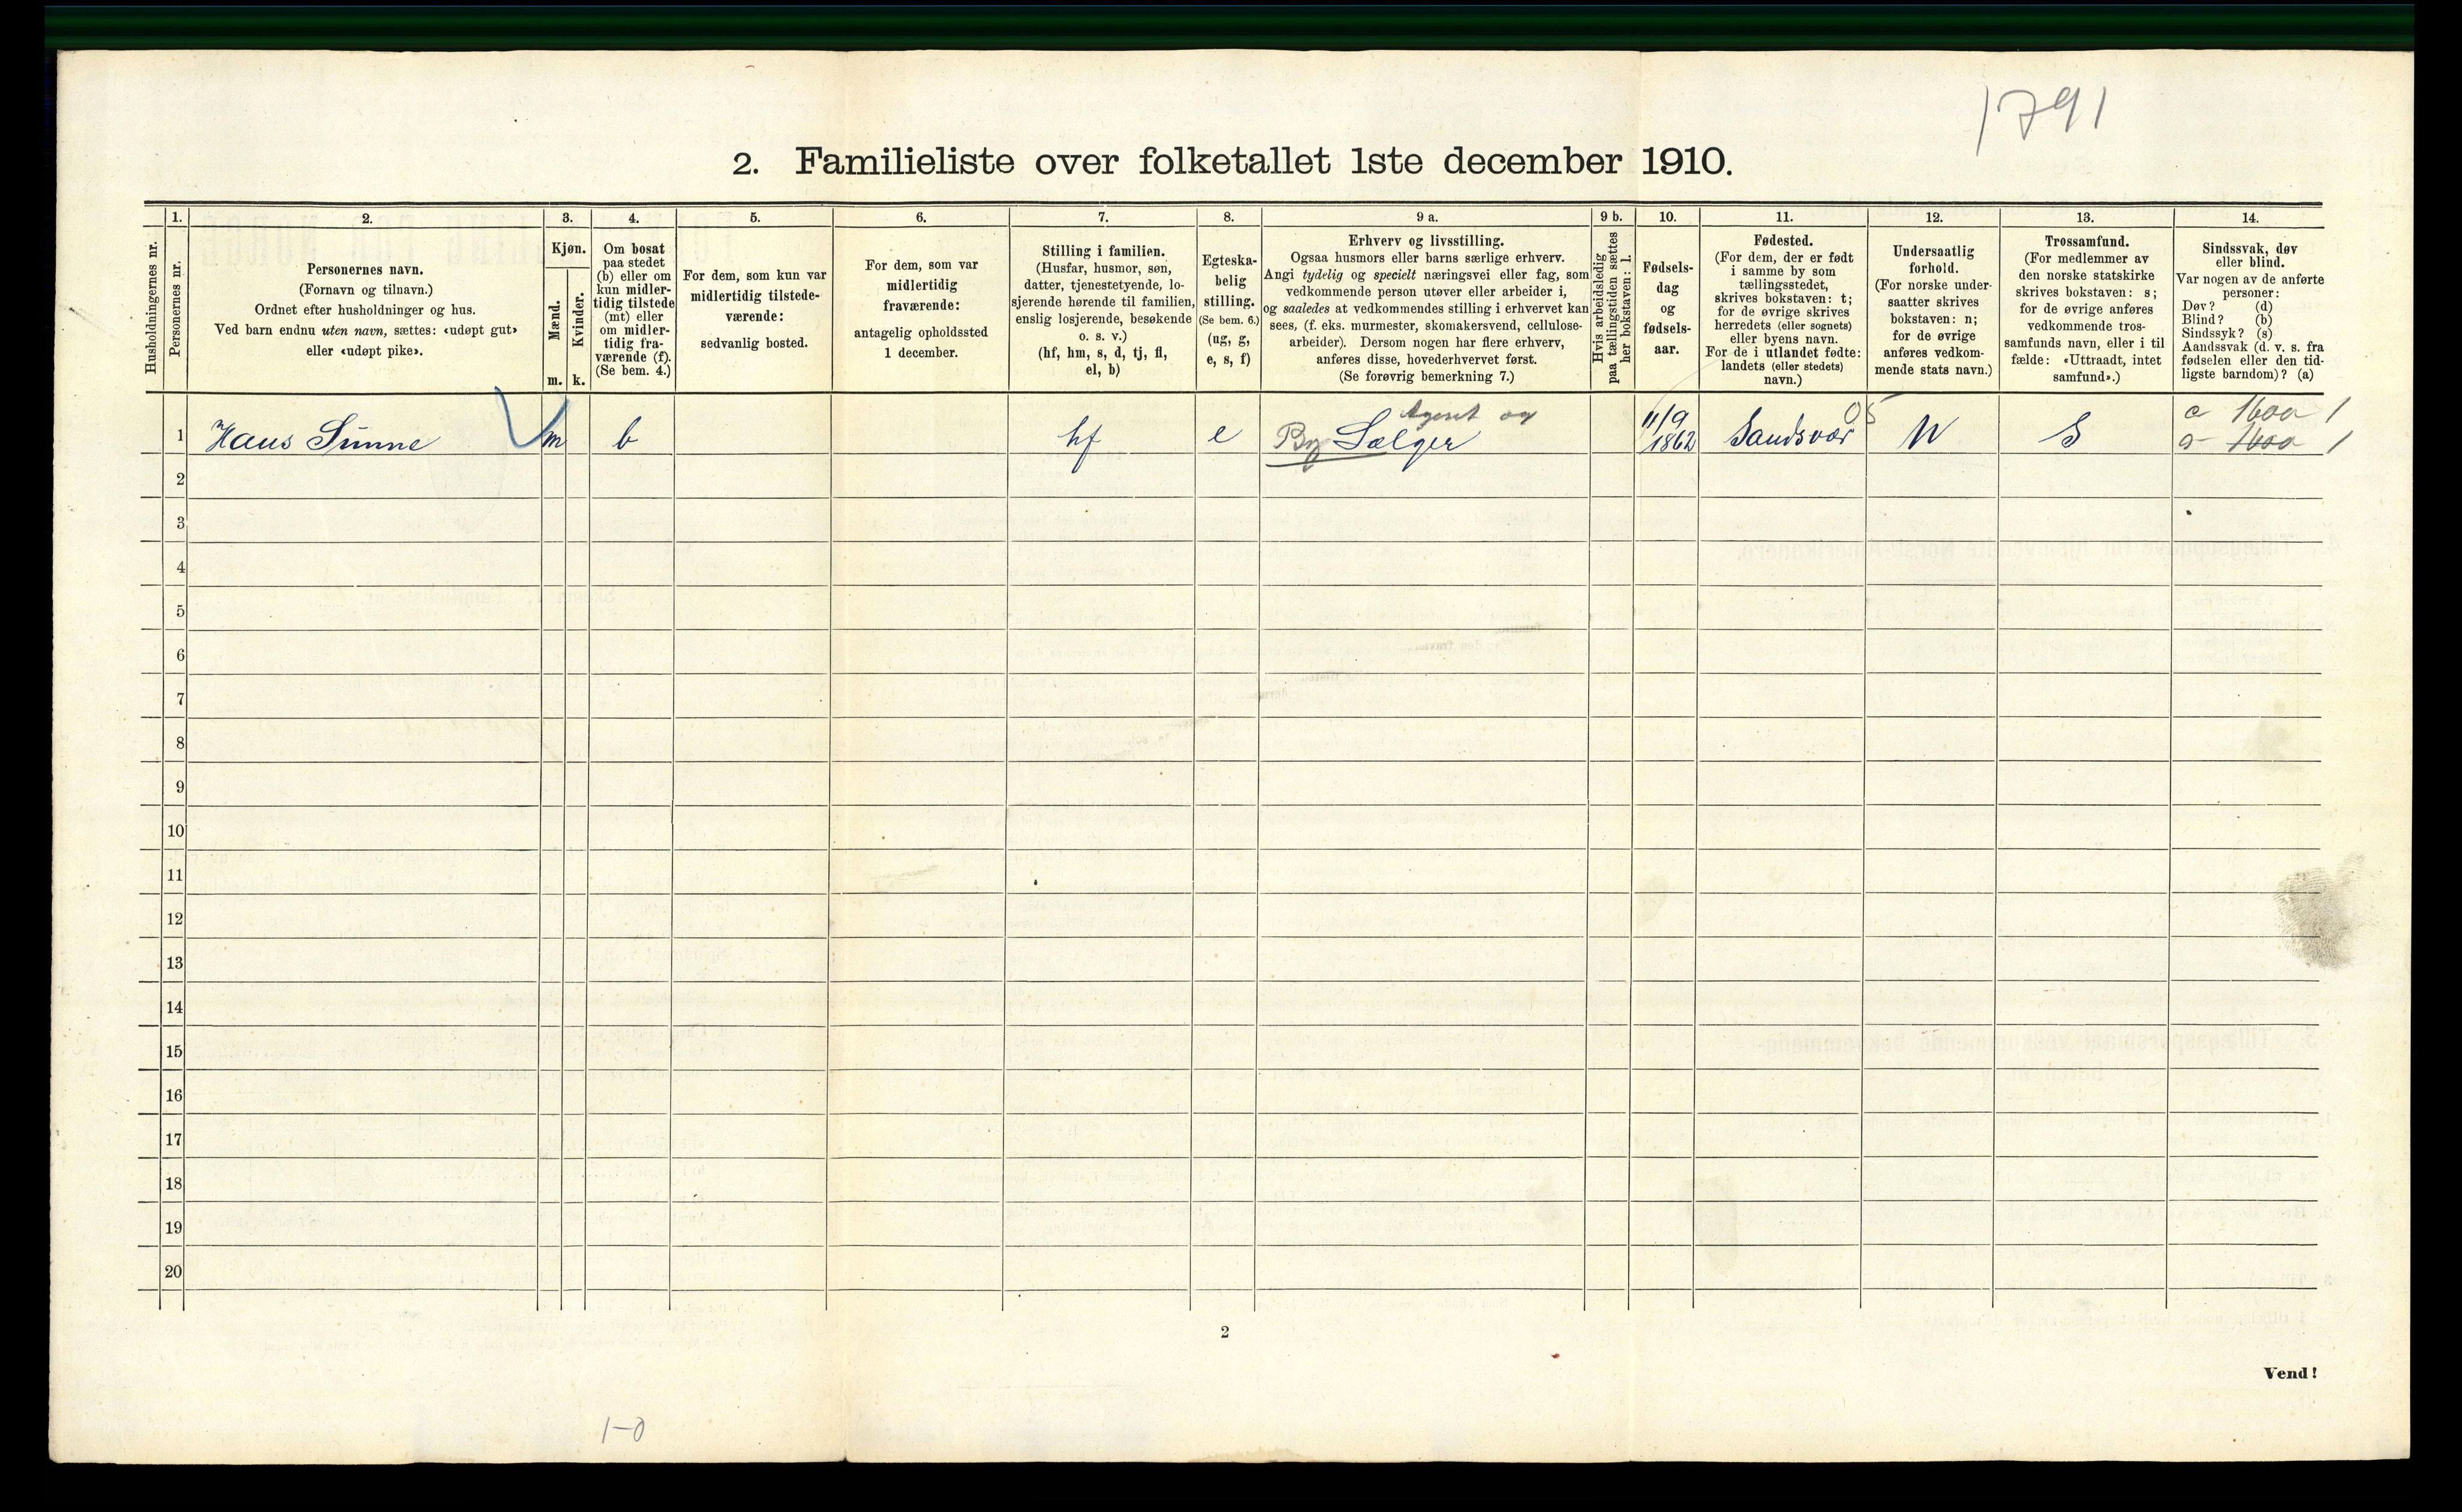 1791
2. Familieliste over folketallet 1ste december 1910.
Husholdningernes nr.
1.
Personernes nr.
2.
Personernes navn.
(Fornavn og tilnavn.)
Ordnet efter husholdninger og hus.
Ved barn endnu uten navn, sættes: «udøpt gut»
eller «udøpt pike».
3.
Kjøn.
Mænd.
m.
Kvinder.
k.
4.
Om bosat
paa stedet
(b) eller om
kun midler-
tidig tilstede
(mt) eller
om midler-
tidig fra-
værende (f).
(Se bem. 4.)
5.
For dem, som kun var
midlertidig tilstede-
værende:
sedvanlig bosted.
6.
For dem, som var
midlertidig
fraværende:
antagelig opholdssted
1 december.
7.
Stilling i familien.
(Husfar, husmor, søn,
datter, tjenestetyende, lo-
sjerende hørende til familien,
enslig losjerende, besøkende
o. s. v.)
(hf, hm, s, d, tj, fl,
el, b)
8.
Egteska-
belig
stilling.
(Se bem. 6.)
(ug, g,
e, s, f)
9 a.
Erhverv og livsstilling.
Ogsaa husmors eller barns særlige erhverv.
Angi tydelig og specielt næringsvei eller fag, som
vedkommende person utøver eller arbeider i,
og saaledes at vedkommendes stilling i erhvervet kan
sees, (f. eks. murmester, skomakersvend, cellulose-
arbeider). Dersom nogen har flere erhverv,
anføres disse, hovederhvervet først.
(Se forøvrig bemerkning 7.)
9 b.
Hvis arbeidsledig
paa tællingstiden sættes
her bokstaven: l.
10.
Fødsels-
dag
og
fødsels-
aar.
11.
Fødested.
(For dem, der er født
i samme by som
tællingsstedet,
skrives bokstaven: t;
for de øvrige skrives
herredets (eller sognets)
eller byens navn.
For de i utlandet fødte:
landets (eller stedets)
navn.)
12.
Undersaatlig
forhold.
(For norske under-
saatter skrives
bokstaven: n;
for de øvrige
anføres vedkom-
mende stats navn.)
13.
Trossamfund.
(For medlemmer av
den norske statskirke
skrives bokstaven: s;
for de øvrige anføres
vedkommende tros-
samfunds navn, eller i til
fælde: «Uttraadt, intet
samfund».)
14.
Sindssvak, døv
eller blind.
Var nogen av de anførte
personer:
Døv? (d)
Blind? (b)
Sindssyk? (s)
Aandssvak (d. v. s. fra
fødselen eller den tid-
ligste barndom)? (a)
Agent og 11/9 05 e 1600 1
1 Hans Sunne m b hf e By Sælger 1862 Sandsvær N S 1600 1
2
3
4
5
6
7
8
9
10
11
12
13
14
15
16
17
18
19
20
2
Vend!
1-0